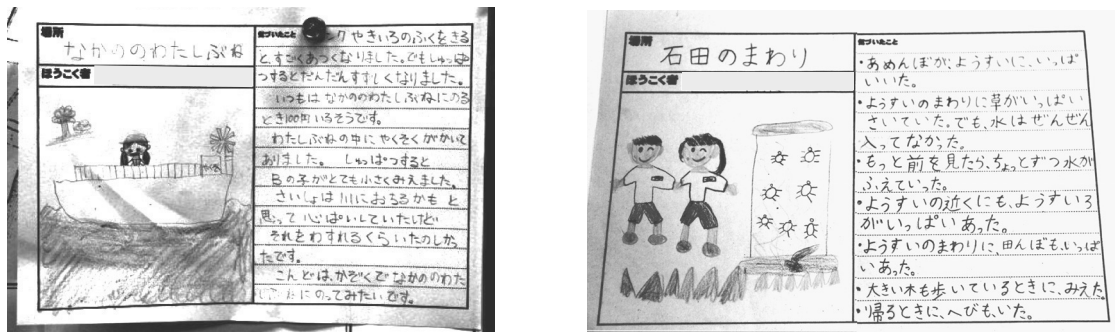 場所
なかののわたしぶね
ほうこく者
気づいたこと
ングやきいろのふくをきる
と、すごくあつくなりました。でもしゅっぱ
つするとだんだんすずしくなりました。
いつもは なかののわたしぶねにのる
とき100円いるそうです。
わたしぶねの中にやくそくがかいて
ありました。 しゅっぱつすると
Bの子がとても小さくみえました。
さいしょは 川におちるかも と
思って 心ぱいしていたけど
それをわすれるくらいたのしか
たです。
こんどは、かぞくでなかののわた
にのってみたいです。
場所
石田のまわり
ほうこく者
気づいたこと
・あめんぼが、ようすいに、いっぱ
いいた。
・ようすいのまわりに草がいっぱい
さいていた。でも、水はぜんぜん
入ってなかった。
・もっと前を見たら、ちょっとずつ水が
ふえていった。
・ようすいの近くにも、ようすいろ
がいっぱいあった。
・ようすいのまわりに、田んぼも、いっぱ
いあった。
・大きい木も歩いているときに、みえた。
・帰るときに、へびもいた。